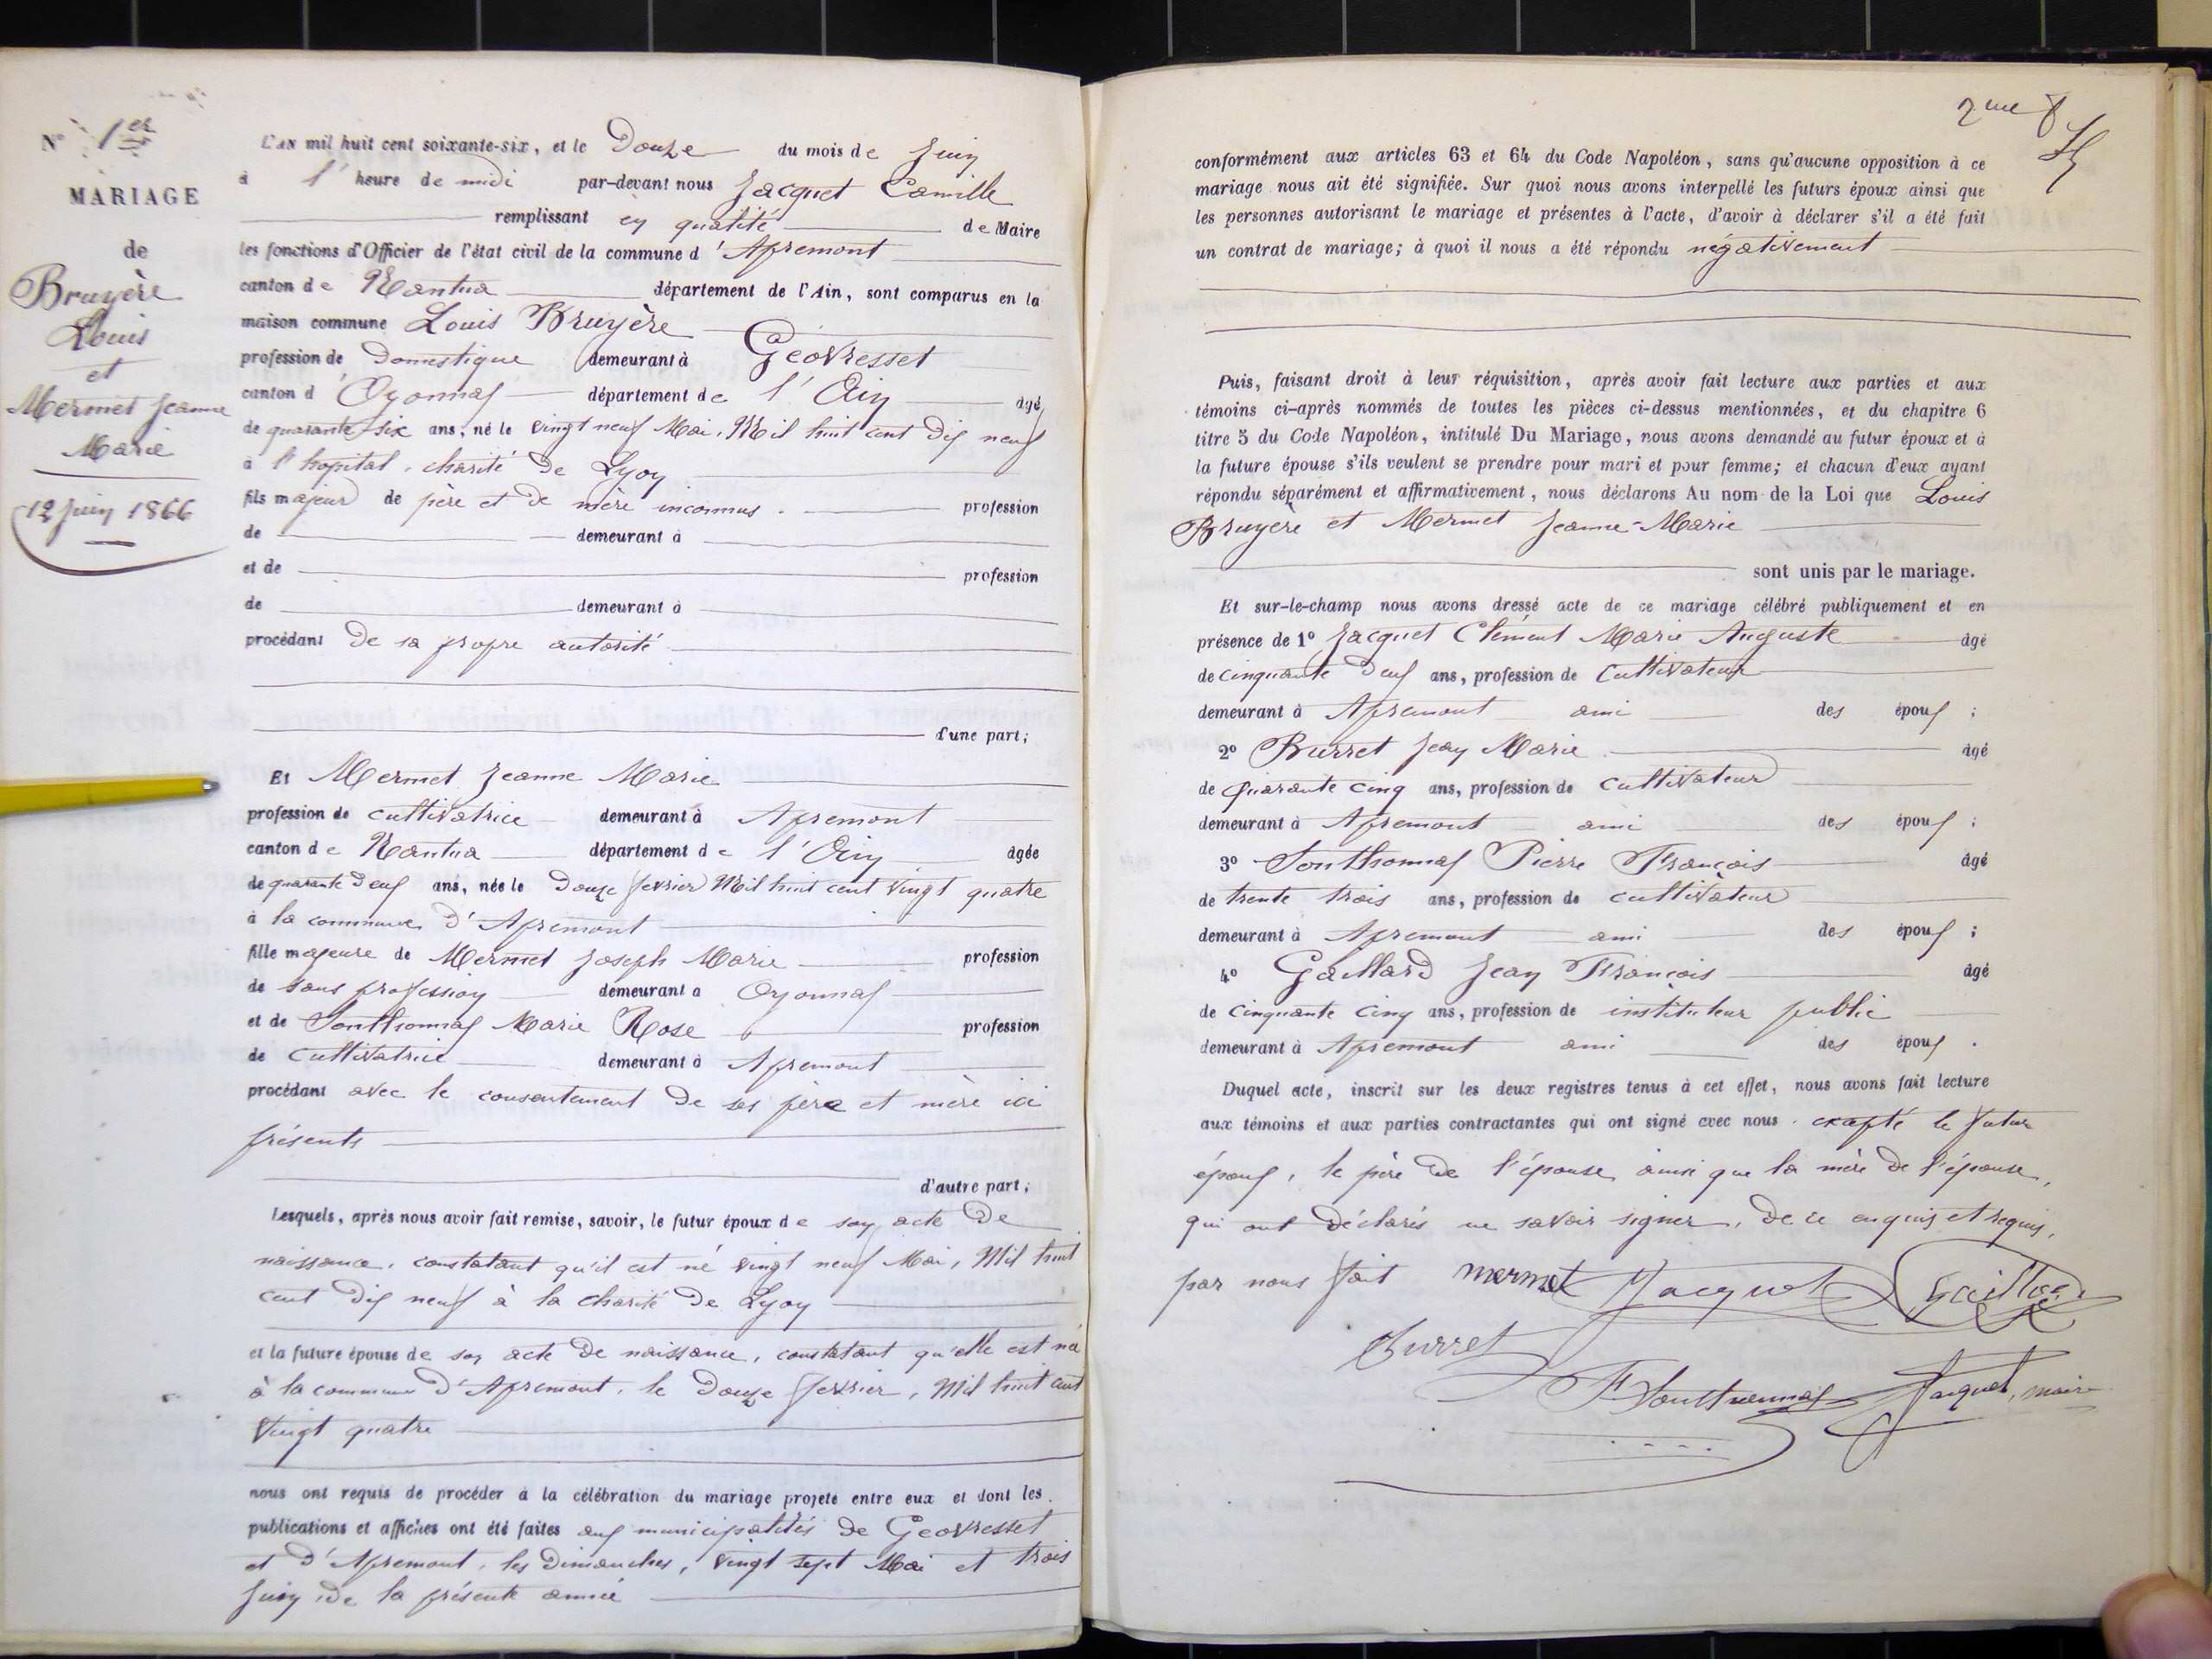 N° 1er
MARIAGE
de
Bruyère
Louis
et
Mermet Jeanne
Marie
12 Juin 1866
L'AN mil huit cent soixante-six, et le Douze du mois de Juin
à l' heure de midi par-devant nous Jacquet Camille
remplissant en qualité de Maire
les fonctions d'Officier de l'état civil de la commune d'Apremont
canton de Nantua département de l'Ain, sont comparus en la
maison commune Louis Bruyère
profession de Domestique demeurant à Géovresset
canton d'Oyonnax département de l'Ain âgé
de quarante-six ans, né le vingt neuf Mai, Mil huit cent Dix neuf
à l'hopital, charité de Lyon
fils majeur de père et de mère inconnus. profession
de demeurant à
et de profession
de demeurant à
procédant De sa propre autorité
d'une part;
Et Mermet Jeanne Marie
profession de cultivatrice demeurant à Apremont
canton de Nantua département de l'Ain âgée
de quarante deux ans, née le Douze février Mil huit cent vingt quatre
à la commune D'Apremont
fille majeure de Mermet Joseph Marie profession
de sans profession demeurant à Oyonnax
et de Sonthonnax Marie Rose profession
de Cultivatrice demeurant à Apremont
procédant avec le consentement De ses père et mère ici
présents
d'autre part;
Lesquels, après nous avoir fait remise, savoir, le futur époux de son acte De
naissance, constatant qu'il est né vingt neuf Mai, Mil huit
cent Dix neuf à la charité De Lyon
et la future épouse de son acte De naissance, constatant qu'elle est née
à la commune D'Apremont, le Douze février, Mil huit cent
vingt quatre
nous ont requis de procéder à la célébration du mariage projeté entre eux et dont les
publications et affiches ont été faites aux municipalités de Geovresset
et D'Apremont, les Dimanches, vingt sept Mai et trois
Juin, De la présente année
2me f
conformément aux articles 63 et 64 du Code Napoléon, sans qu'aucune opposition à ce
mariage nous ait été signifiée. Sur quoi nous avons interpellé les futurs époux ainsi que
les personnes autorisant le mariage et présentes à l'acte, d'avoir à déclarer s'il a été fait
un contrat de mariage; à quoi il nous a été répondu négativement
Puis, faisant droit à leur réquisition, après avoir fait lecture aux parties et aux
témoins ci-après nommés de toutes les pièces ci-dessus mentionnées, et du chapitre 6
titre 5 du Code Napoléon, intitulé Du Mariage, nous avons demandé au futur époux et à
la future épouse s'ils veulent se prendre pour mari et pour femme; et chacun d'eux ayant
répondu séparément et affirmativement, nous déclarons Au nom de la Loi que Louis
Bruyère et Mermet Jeanne-Marie
sont unis par le mariage.
Et sur-le-champ nous avons dressé acte de ce mariage célébré publiquement et en
présence de 1° Jacquet Clément Marie Auguste âgé
de cinquante Deux ans, profession de Cultivateur
demeurant à Apremont ami des époux;
2° Burret Jean Marie âgé
de Quarante cinq ans, profession de cultivateur
demeurant à Apremont ami des époux;
3° Sonthonnax Pierre François âgé
de trente trois ans, profession de cultivateur
demeurant à Apremont ami des époux;
4° Gaillard Jean François âgé
de cinquante cinq ans, profession de instituteur public
demeurant à Apremont ami des époux.
Duquel acte, inscrit sur les deux registres tenus à cet effet, nous avons fait lecture
aux témoins et aux parties contractantes qui ont signé avec nous. excepté le futur
époux, le père De l'épouse ainsi que la mère De l'épouse,
qui ont Déclarés ne savoir signer, De ce enquis et requis,
par nous fait mermet Jacquet Gaillard
Burret
F Sonthonnax Jacquet, maire